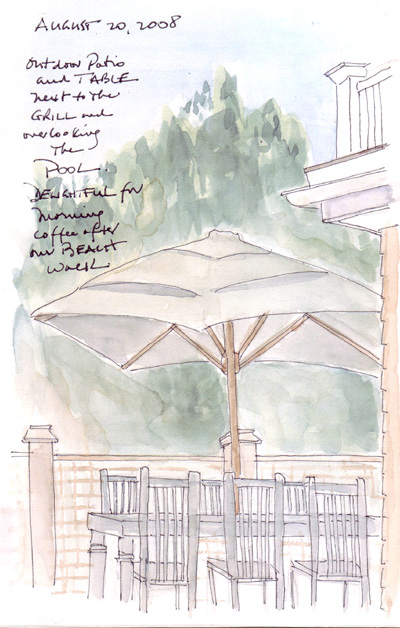 AUGUST 20, 2008
Outdoor Patio
and TABLE
next to the
GRILL and
overlooking
the
POOL.
DELIGHTFUL for
morning
coffee after
our BEACH
walk.